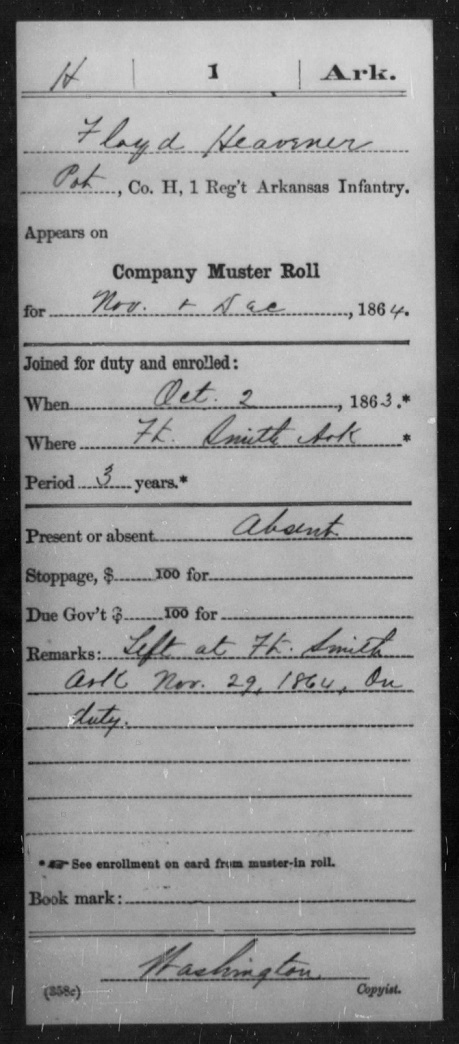 H 1 Ark.
Floyd Heavener
Pvt, Co. H, 1 Reg't Arkansas Infantry.
Appears on
Company Muster Roll
for Nov. & Dec, 1864.
Joined for duty and enrolled:
When Oct. 2, 1863.*
Where Ft. Smith Ark *
Period 3 years.*
Present or absent Absent
Stoppage, $ 100 for
Due Gov't $ 100 for
Remarks: Left at Ft. Smith
Ark Nov. 29, 1864, On
duty.
*☞ See enrollment on card from muster-in roll.
Book mark:
Washington
(358c) Copyist.